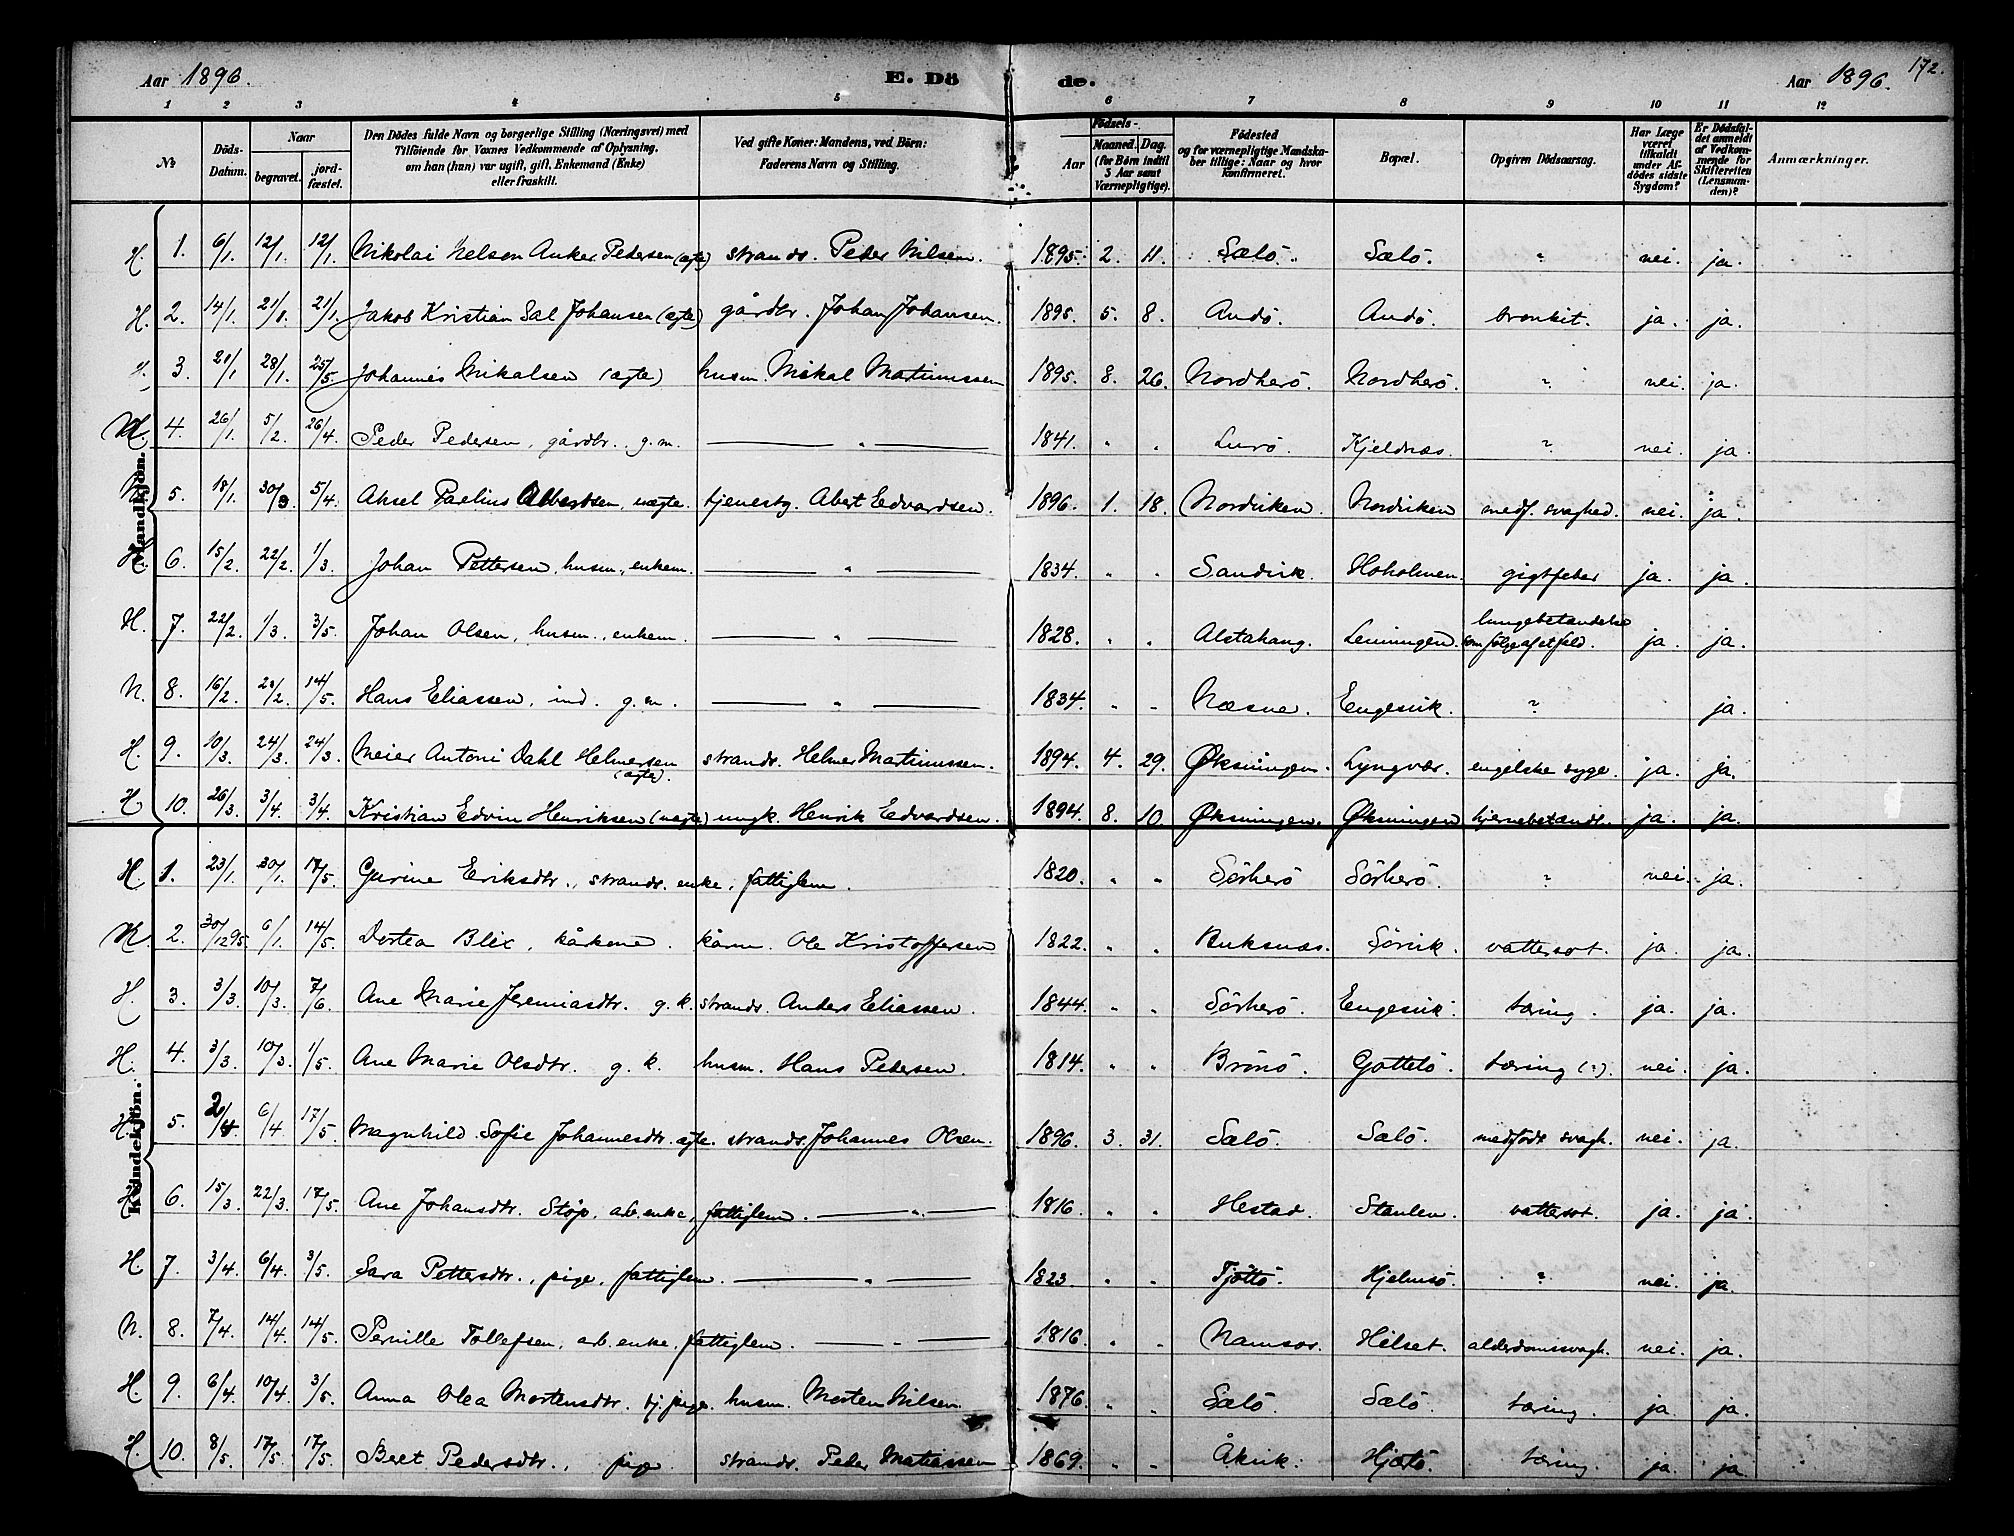 Aar 1896. E. Dö de. Aar 1896. 172.
1 2 3 4 5 6 7 8 9 10 11 12
№ Döds-Datum. Naar begravet. jord-fæstet. Den Dödes fulde Navn og borgerlige Stilling (Næringsvei) med Tilföiende for Voxnes Vedkommende af Oplysning, om han (hun) var ugift, gift, Enkemand (Enke) eller fraskilt. Ved gifte Koner: Mandens, ved Börn: Faderens Navn og Stilling. Födsels- Aar Maaned. Dag. (for Börn indtil 5 Aar samt Værnepligtige). Födested og for værnepligtige Mandska-ber tillige: Naar og hvor konfirmeret. Bopæl. Opgiven Dödsaarsag. Har Læge været tilkaldt under Af-dödes sidste Sygdom? Er Dödsfal-det anmeldt af Vedkom-mende for Skifteretten (Lensman-den)? Anmærkninger.
Mandkjön.
H. 1. 6/1. 12/1. 12/1. Nikolai Nelson Anker Pedersen (ægte) strands. Peder Nilsen. 1895. 2. 11. Sælö. Sælö. " nei. ja.
H. 2. 14/1. 21/1. 21/1. Jakob Kristian Sal Johansen (ægte) gårdbr. Johan Johansen. 1895. 5. 8. Andö. Andö. bronkit. ja. ja.
3. 21/1 28/1. 25/5. Johannes Mikalsen (ægte) husm. Mikal Martinussen 1895. 8. 26. Nordherö. Nordherö. ? nei. ja.
4. 26/1. 5/2. 26/4. Peder Pedersen, gårdbr. g.m. — " — 1841. " " Lurö. Kjeldnæs. ? nei. ja.
N. 5. 18/1. 30/3 5/4. Aksel Paelius Albertsen, uægte. tjenestg. Abert Edvardsen. 1896. 1. 18. Nordviken. Nordviken medf. svaghed. nei. ja.
H. 6. 15/2. 22/2. 1/3. Johan Pettersen, husm., enkem. — " — 1834. " " Sandvik. Hoholmen. gigtfeber ja. ja.
H. 7. 22/2. 1/3. 3/5. Johan Olsen, husm., enkem. — " — 1828. " " Alstahaug. Leiningen. lungebetændelse som følge af et fald. ja ja.
N. 8. 16/2. 23/2. 14/5. Hans Eliassen, ind. g.m. — " — 1834. " " Næsne. Engesvik. ? ja.
H. 9. 10/3. 24/3. 24/3. Meier Antoni Dahl Helmersen (ægte). strands. Helmer Martinussen. 1894. 4. 29. Øksningen. Lyngvær. engelske syge. ja. ja.
H 10. 26/3. 3/4. 3/4. Kristian Edvin Henriksen (uægte) ungk. Henrik Edvardsen. 1894. 8. 10. Øksningen. Øksningen hjernebetændt.. ja. ja.
Kvindekjön.
H 1. 23/1. 30/1. 17/5. Gurine Eriksdtr., strands. enke, fattiglem. 1820. " " Sörherö Sörherö. ? nei. ja.
N. 2. 30/12 95. 6/1. 14/5. Dortea Blix, kårkone. kårm. Ole Kristoffersen 1822. " " Buksnæs. Sörvik. vattersot. ja ja.
H. 3. 3/3. 10/3. 7/6. Ane Marie Jeremiasdtr. g.k. strands. Anders Eliassen. 1844. " " Sörherö. Engesvik. tæring. ja. ja.
H. 4. 3/3. 10/3. 1/5. Ane Marie Olsdtr. g.k. husm. Hans Pedersen. 1814. " " Brönö. Gottelö. tæring (?). nei. ja.
H. 5. 2/4. 6/4 17/5. Magnhild Sofie Johannesdtr. ægte. strands. Johannes Olsen. 1896. 3. 31. Sælö. Sælö. medfödt svagh. nei. ja.
H 6. 15/3. 22/3. 17/5. Ane Johansdtr. Støp, arb. enke, fattiglem. — " — 1816. " " Hestad. Staulen. vattersot. ja. ja.
H 7. 3/4. 6/4. 3/5. Sara Pettersdtr., pige, fattiglem. — " — 1823. " " Tjöttö. Hjelmsö. ? nei. ja.
N. 8. 7/4. 14/4. 14/5. Pernille Tollefsen, arb. enke, fattiglem. — " — 1816. " " Namsos. Hilset. alderdomssvagh. nei. ja.
H 9. 6/4. 10/4 3/5. Anna Olea Mortensdtr. tj. pige. husm. Morten Nilsen. 1876. " " Sælö. Sælö. tæring. ja ja.
H. 10. 8/5. 17/5. 17/5. Beret Pedersdtr., pige strands. Peder Matiassen 1869. " " Åkvik. Hjartö. tæring. ja. ja